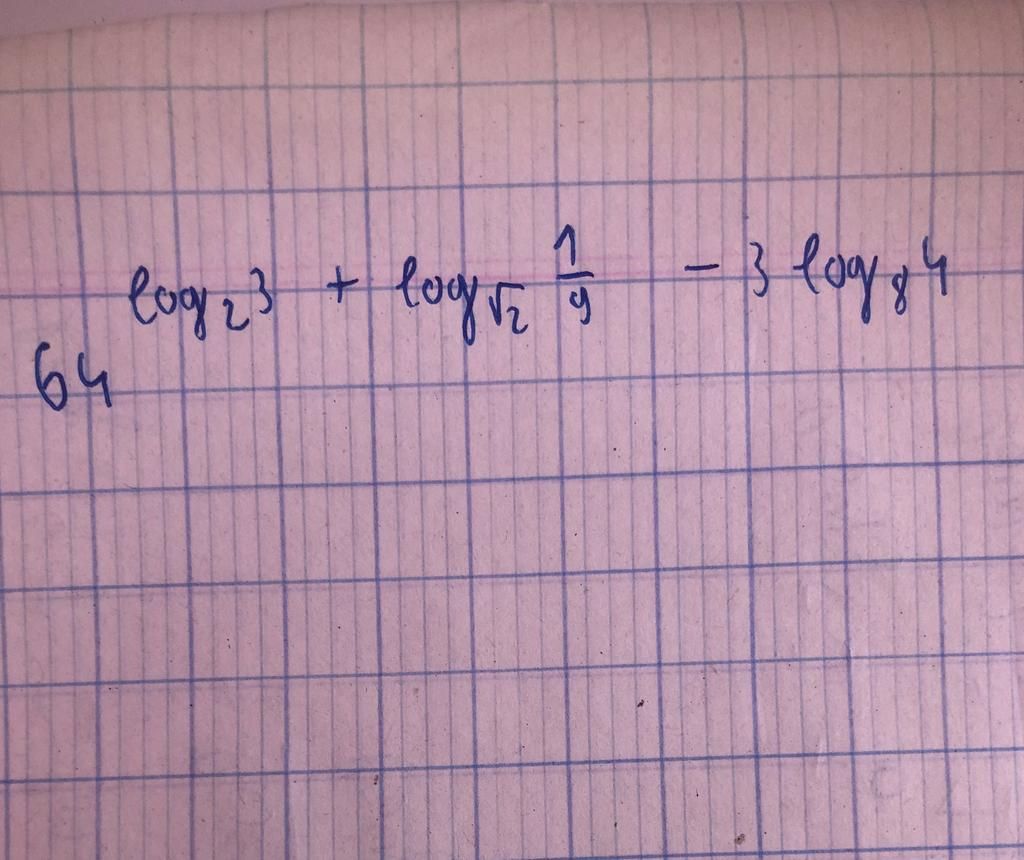 64^{log_2 3 + log_{√2} \frac{1}{9} - 3 log_8 4}